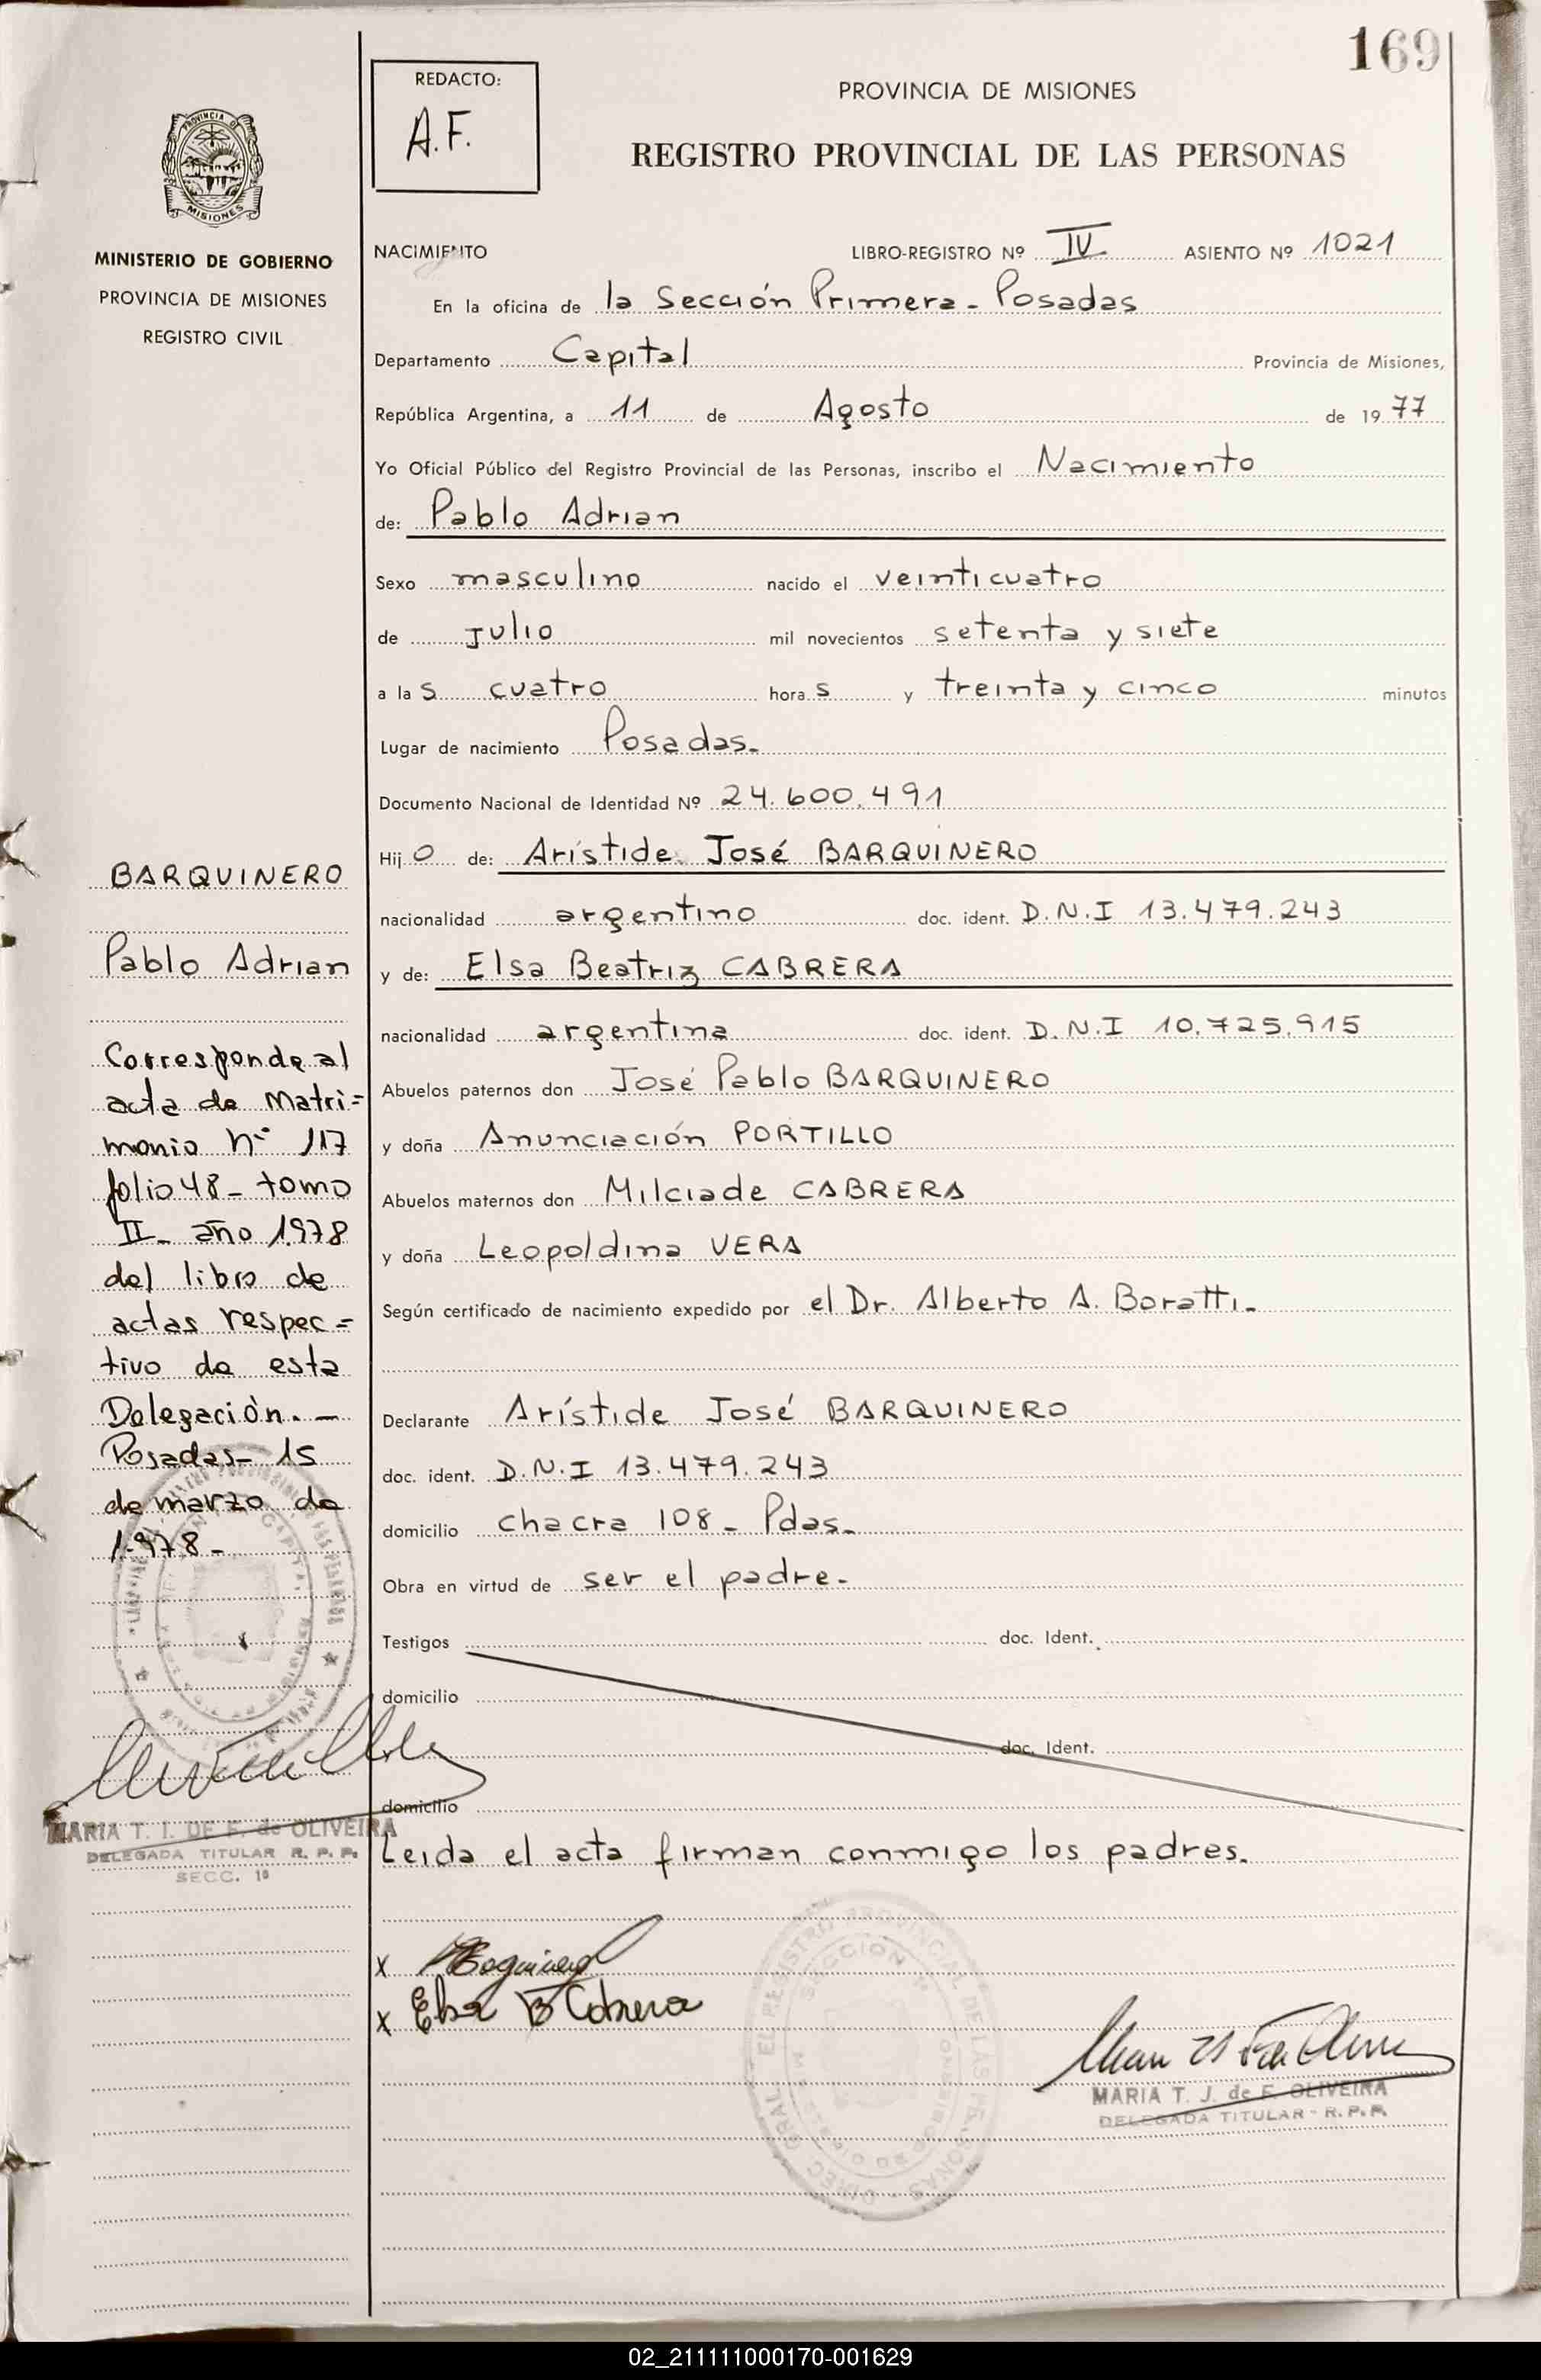 169
REDACTO:
A.F.
PROVINCIA DE MISIONES
REGISTRO PROVINCIAL DE LAS PERSONAS
PROVINCIA DE
MISIONES
MINISTERIO DE GOBIERNO
PROVINCIA DE MISIONES
REGISTRO CIVIL
NACIMIENTO LIBRO-REGISTRO Nº IV ASIENTO Nº 1021
En la oficina de la Sección Primera - Posadas
Departamento Capital Provincia de Misiones,
República Argentina, a 11 de Agosto de 1977
Yo Oficial Público del Registro Provincial de las Personas, inscribo el Nacimiento
de: Pablo Adrian
Sexo masculino nacido el veinticuatro
de Julio mil novecientos setenta y siete
a las cuatro horas y treinta y cinco minutos
Lugar de nacimiento Posadas.
Documento Nacional de Identidad Nº 24.600.491
Hijo de: Arístide José BARQUINERO
nacionalidad argentino doc. ident. D.N.I 13.479.243
y de: Elsa Beatriz CABRERA
nacionalidad argentina doc. ident. D.N.I 10.725.915
Abuelos paternos don José Pablo BARQUINERO
y doña Anunciación PORTILLO
Abuelos maternos don Milciade CABRERA
y doña Leopoldina VERA
Según certificado de nacimiento expedido por el Dr. Alberto A. Boratti.
Declarante Arístide José BARQUINERO
doc. ident. D.N.I 13.479.243
domicilio chacra 108 - Pdas.
Obra en virtud de ser el padre.
Testigos doc. Ident.
domicilio
doc. Ident.
domicilio
Leida el acta firman conmigo los padres.
x
x Elsa B Cabrera
MARIA T. J. de F. OLIVEIRA
DELEGADA TITULAR - R.P.P.
BARQUINERO
Pablo Adrian
Corresponde al
acta de Matri=
monio nº 117
folio 48 - tomo
II - año 1.978
del libro de
actas respec=
tivo de esta
Delegación. -
Posadas - 15
de marzo de
1.978 -
MARIA T. I. DE F. de OLIVEIRA
DELEGADA TITULAR R. P. P.
SECC. 1ª
02_211111000170-001629